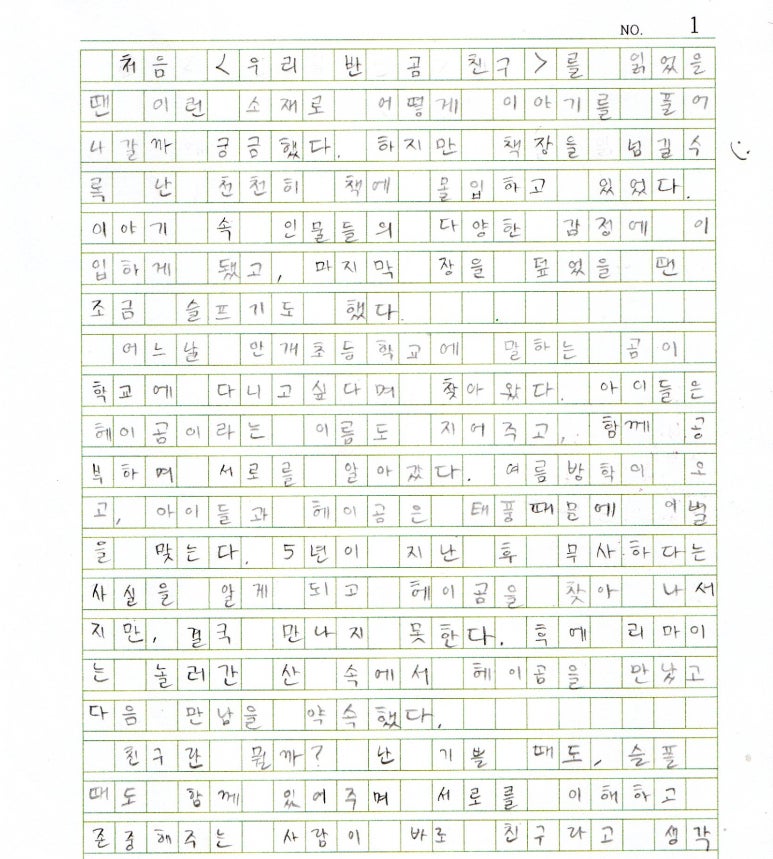 NO. 1
처음 <우리 반 곰 친구>를 읽었을
땐 이런 소재로 어떻게 이야기를 풀어
나갈까 궁금했다. 하지만 책장을 넘길수
록 난 천천히 책에 몰입하고 있었다.
이야기 속 인물들의 다양한 감정에 이
입하게 됐고, 마지막 장을 덮었을 땐
조금 슬프기도 했다.
어느날 안개초등학교에 말하는 곰이
학교에 다니고싶다며 찾아왔다. 아이들은
헤이곰이라는 이름도 지어주고, 함께 공
부하며 서로를 알아갔다. 여름방학이 오
고, 아이들과 헤이곰은 태풍때문에 이별
을 맞는다. 5년이 지난 후 무사하다는
사실을 알게 되고 헤이곰을 찾아 나서
지만, 결국 만나지 못한다. 후에 리마이
는 놀러간 산 속에서 헤이곰을 만났고
다음 만남을 약속했다.
친구란 뭘까? 난 기쁠 때도, 슬플
때도 함께 있어주며 서로를 이해하고
존중해주는 사람이 바로 친구라고 생각